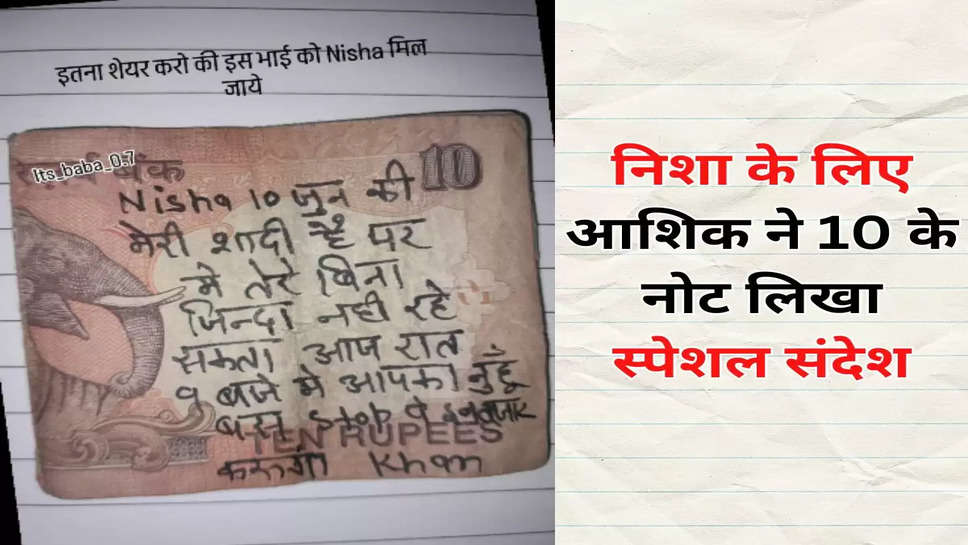 इतना शेयर करो की इस भाई को Nisha मिल
जाये
Its_baba_0.7
बैंक 10
Nisha 10 जुन की
मेरी शादी है पर
मे तेरे बिना
जिन्दा नही रहे
सकता आज रात
9 बजे मे आपका
बस Stop पे
TEN RUPEES
करूगा Kham
निशा के लिए
आशिक ने 10 के
नोट लिखा
स्पेशल संदेश